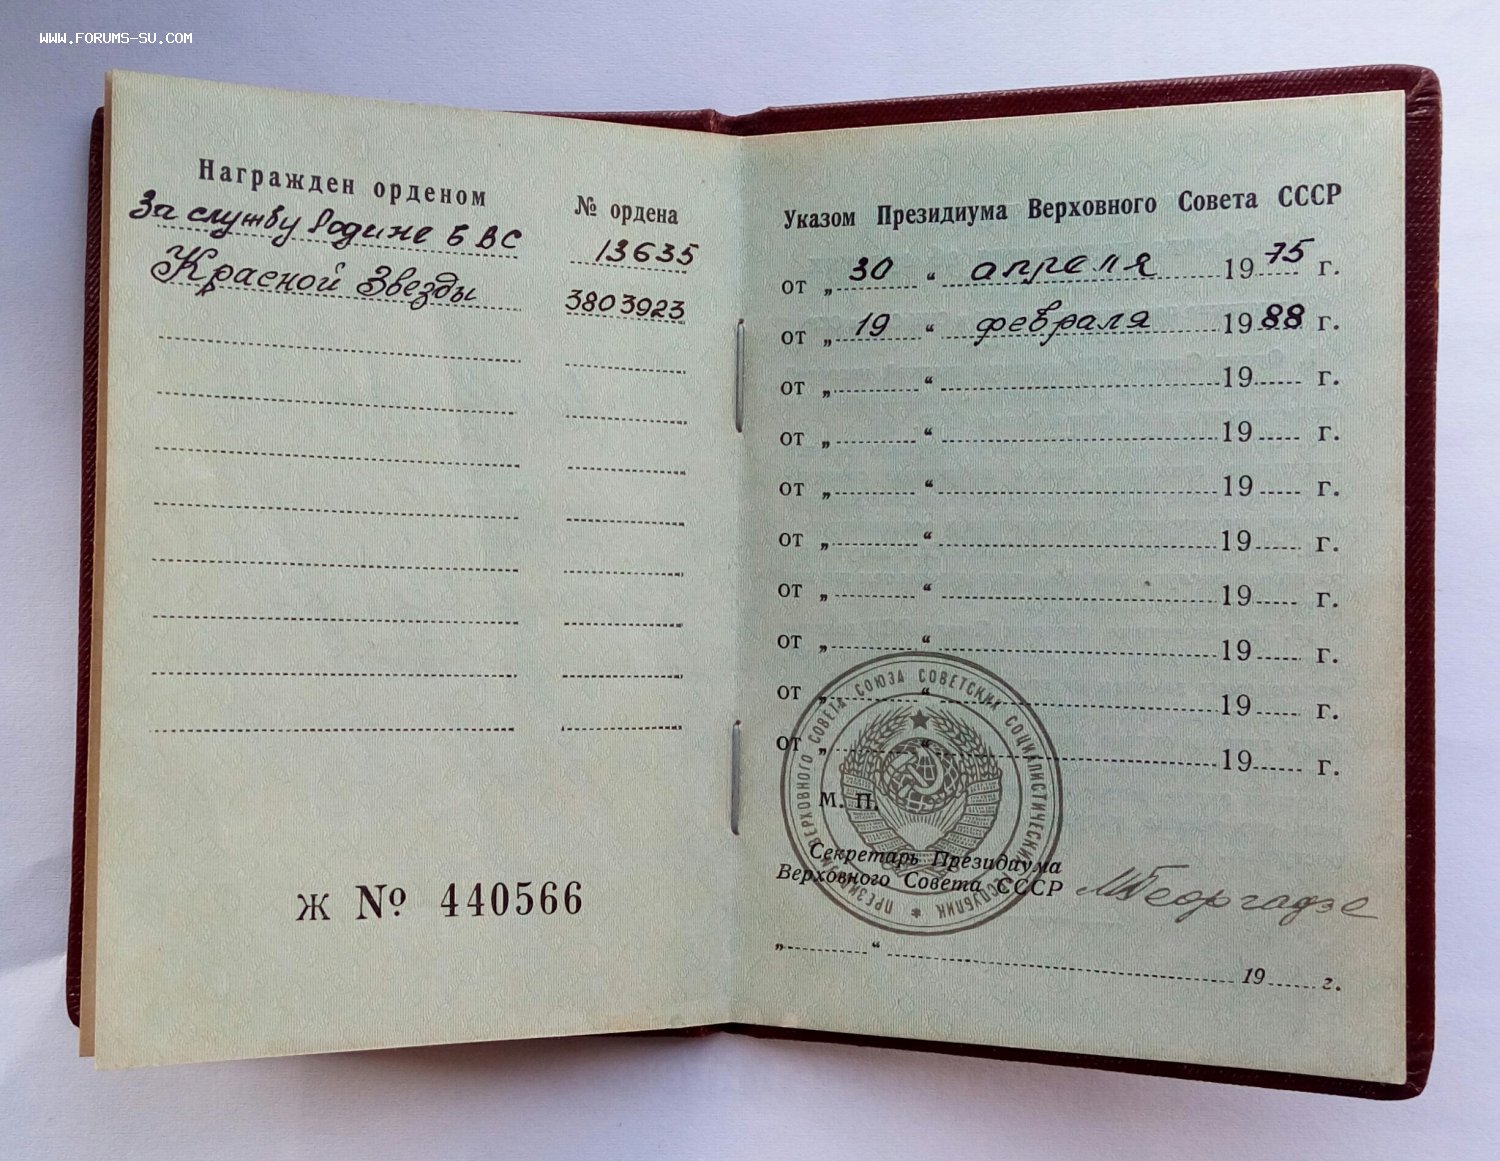 WWW.FORUMS-SU.COM
Награжден орденом
№ ордена
За службу Родине в ВС
13635
Красной Звезды
3803923
Ж № 440566
Указом Президиума Верховного Совета СССР
от „ 30 “ апреля 1975 г.
от „ 19 “ февраля 1988 г.
от „ “ 19 г.
от „ “ 19 г.
от „ “ 19 г.
от „ “ 19 г.
от „ “ 19 г.
от „ “ 19 г.
от „ “ 19 г.
от „ “ 19 г.
ПРЕЗИДИУМ ВЕРХОВНОГО СОВЕТА СОЮЗА СОВЕТСКИХ СОЦИАЛИСТИЧЕСКИХ РЕСПУБЛИК
М. П.
Секретарь Президиума
Верховного Совета СССР
МГеоргадзе
„ “ 19 г.